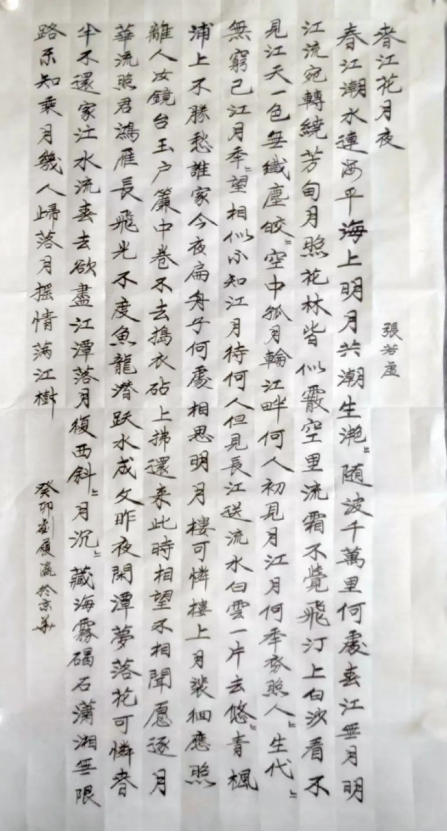 春江花月夜
張若虛
春江潮水連海平海上明月共潮生灔〻随波千萬里何處春江無月明
江流宛轉繞芳甸月照花林皆似霰空里流霜不覺飛汀上白沙看不
見江天一色無纖塵皎〻空中孤月輪江畔何人初見月江月何年初照人〻生代〻
無窮已江月年〻望相似不知江月待何人但見長江送流水白雲一片去悠〻青楓
浦上不勝愁誰家今夜扁舟子何處相思明月樓可憐樓上月裴徊應照
離人妝鏡台玉户簾中卷不去搗衣砧上拂還来此時相望不相聞愿逐月
華流照君鴻雁長飛光不度魚龍潜跃水成文昨夜閑潭夢落花可憐春
半不還家江水流春去欲盡江潭落月復西斜〻月沉〻藏海霧碣石瀟湘無限
路不知乘月幾人歸落月摇情满江樹
癸卯於京華